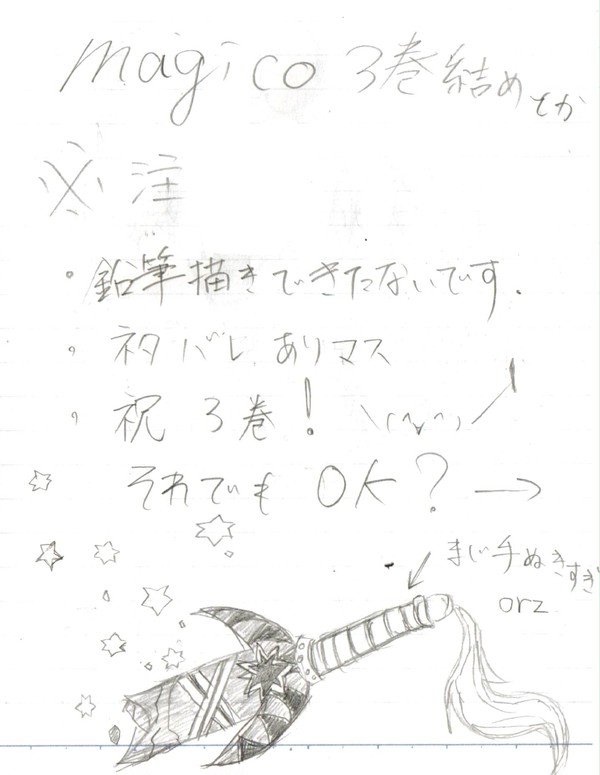 magico 3巻結めとか
※注
・鉛筆描きできたないです.
・ネタバレ ありマス
・祝 3巻! \(^v^)/
それでも OK? →
まじ手ぬきすぎ
orz